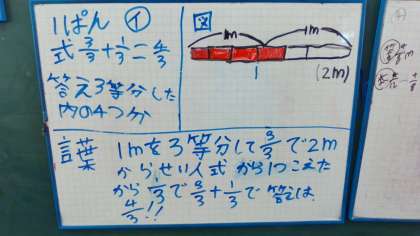 1ぱん ㋑
式 3/3 + 1/3 = 4/3
答え3等分した
内の4つ分
図
1m 1m
1
(2m)
言葉
1mを3等分して3/3で2m
から、せい人式から1つこえた
から3/3で3/3+1/3で答えは
4/3!!